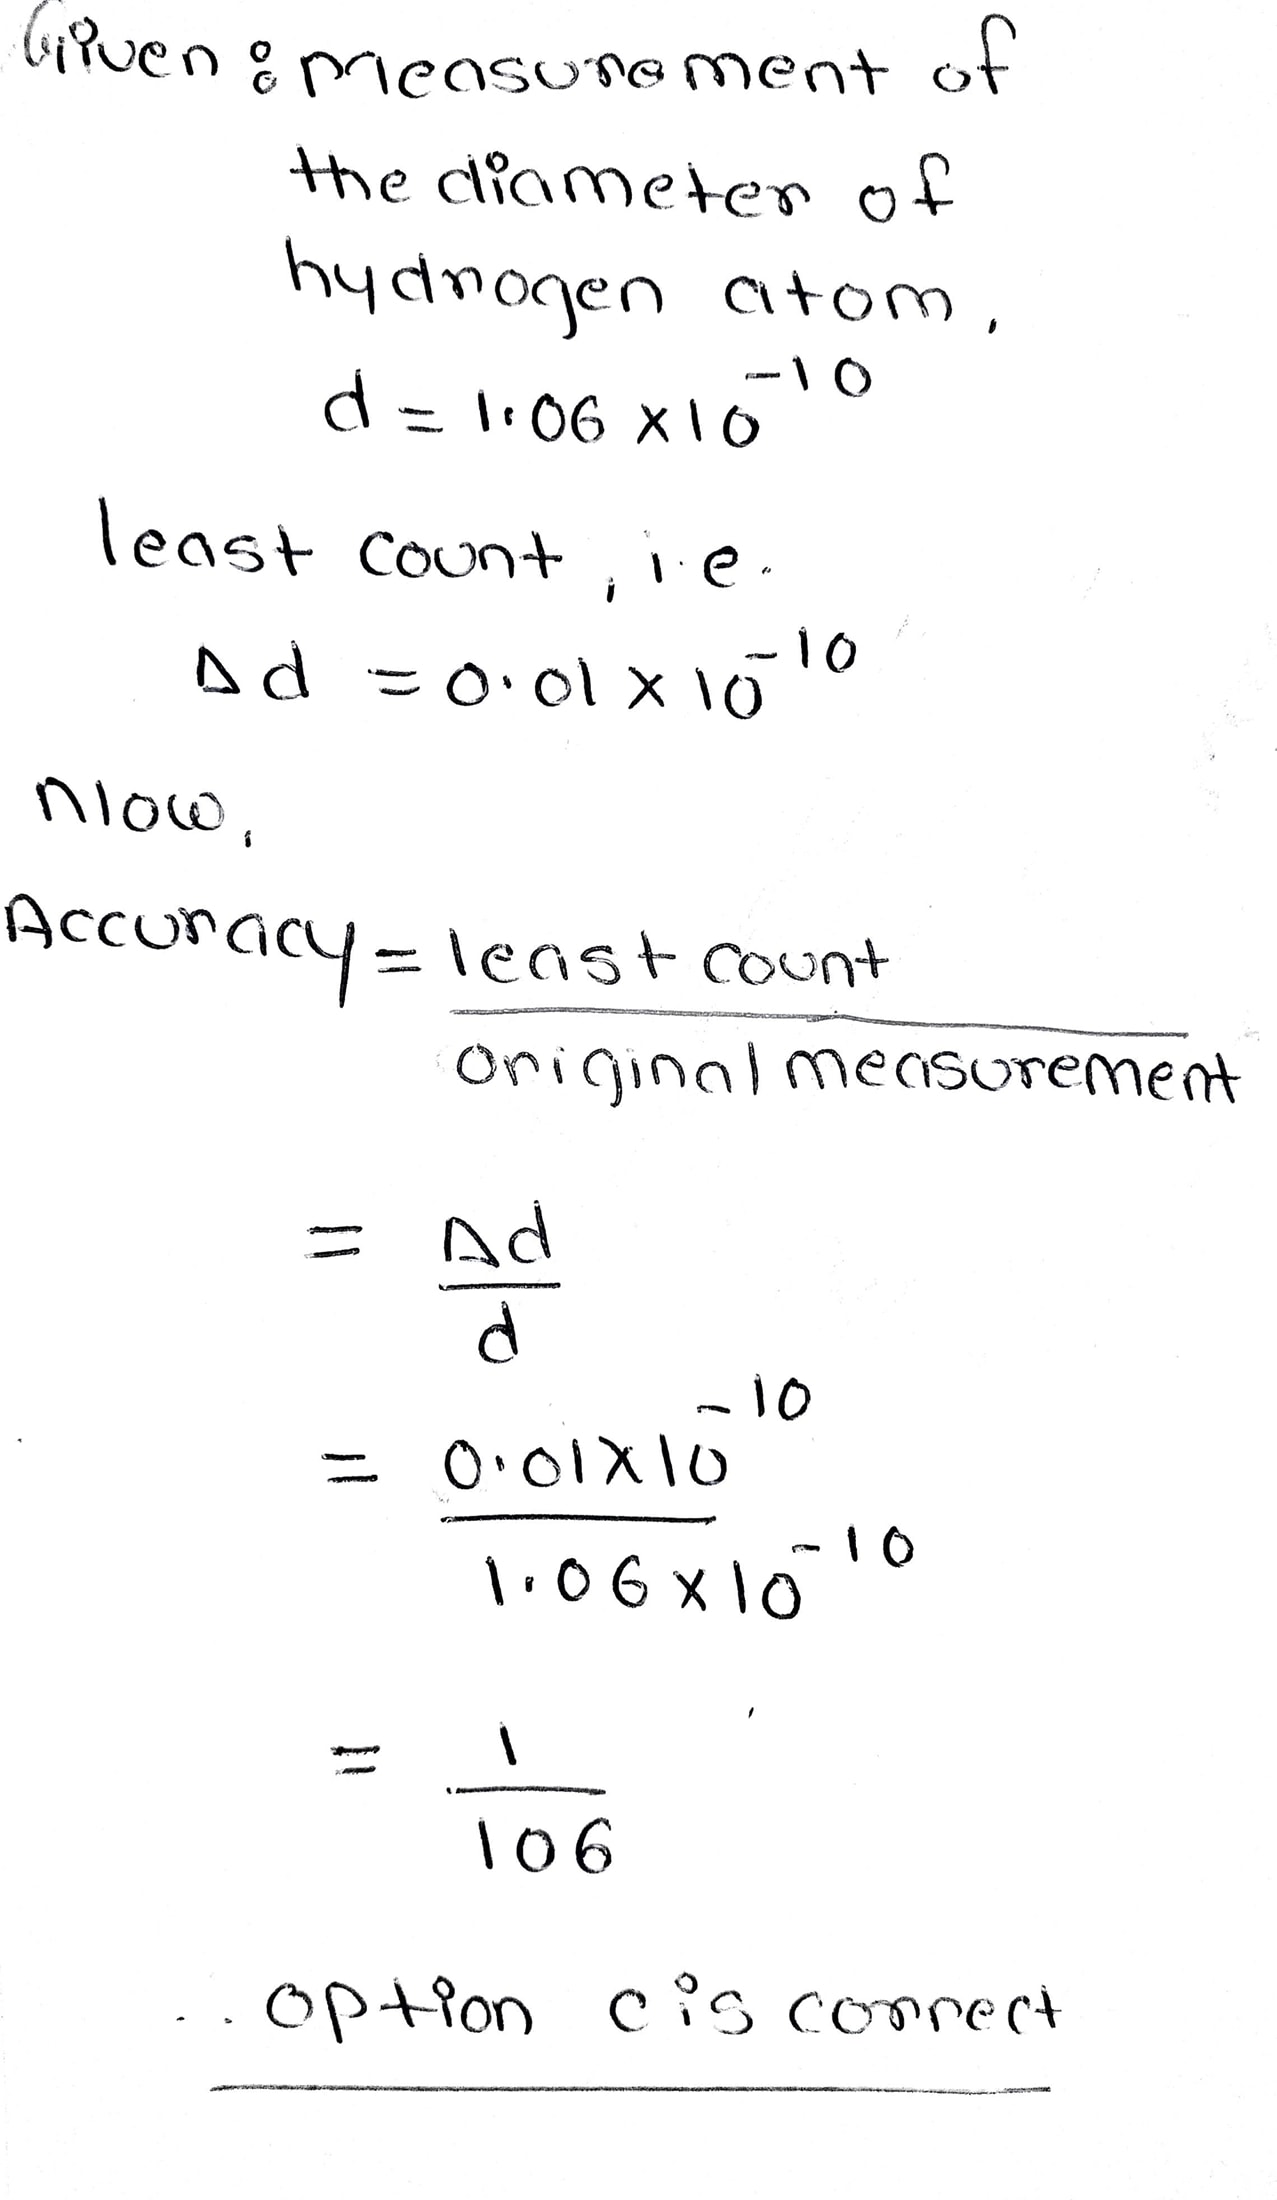 Given : Measurement of
the diameter of
hydrogen atom,
d = 1.06 × 10⁻¹⁰
least count, i.e.
Δd = 0.01 × 10⁻¹⁰
Now,
Accuracy = least count
original measurement
= Δd
d
= 0.01 × 10⁻¹⁰
1.06 × 10⁻¹⁰
= 1
106
.. option c is correct